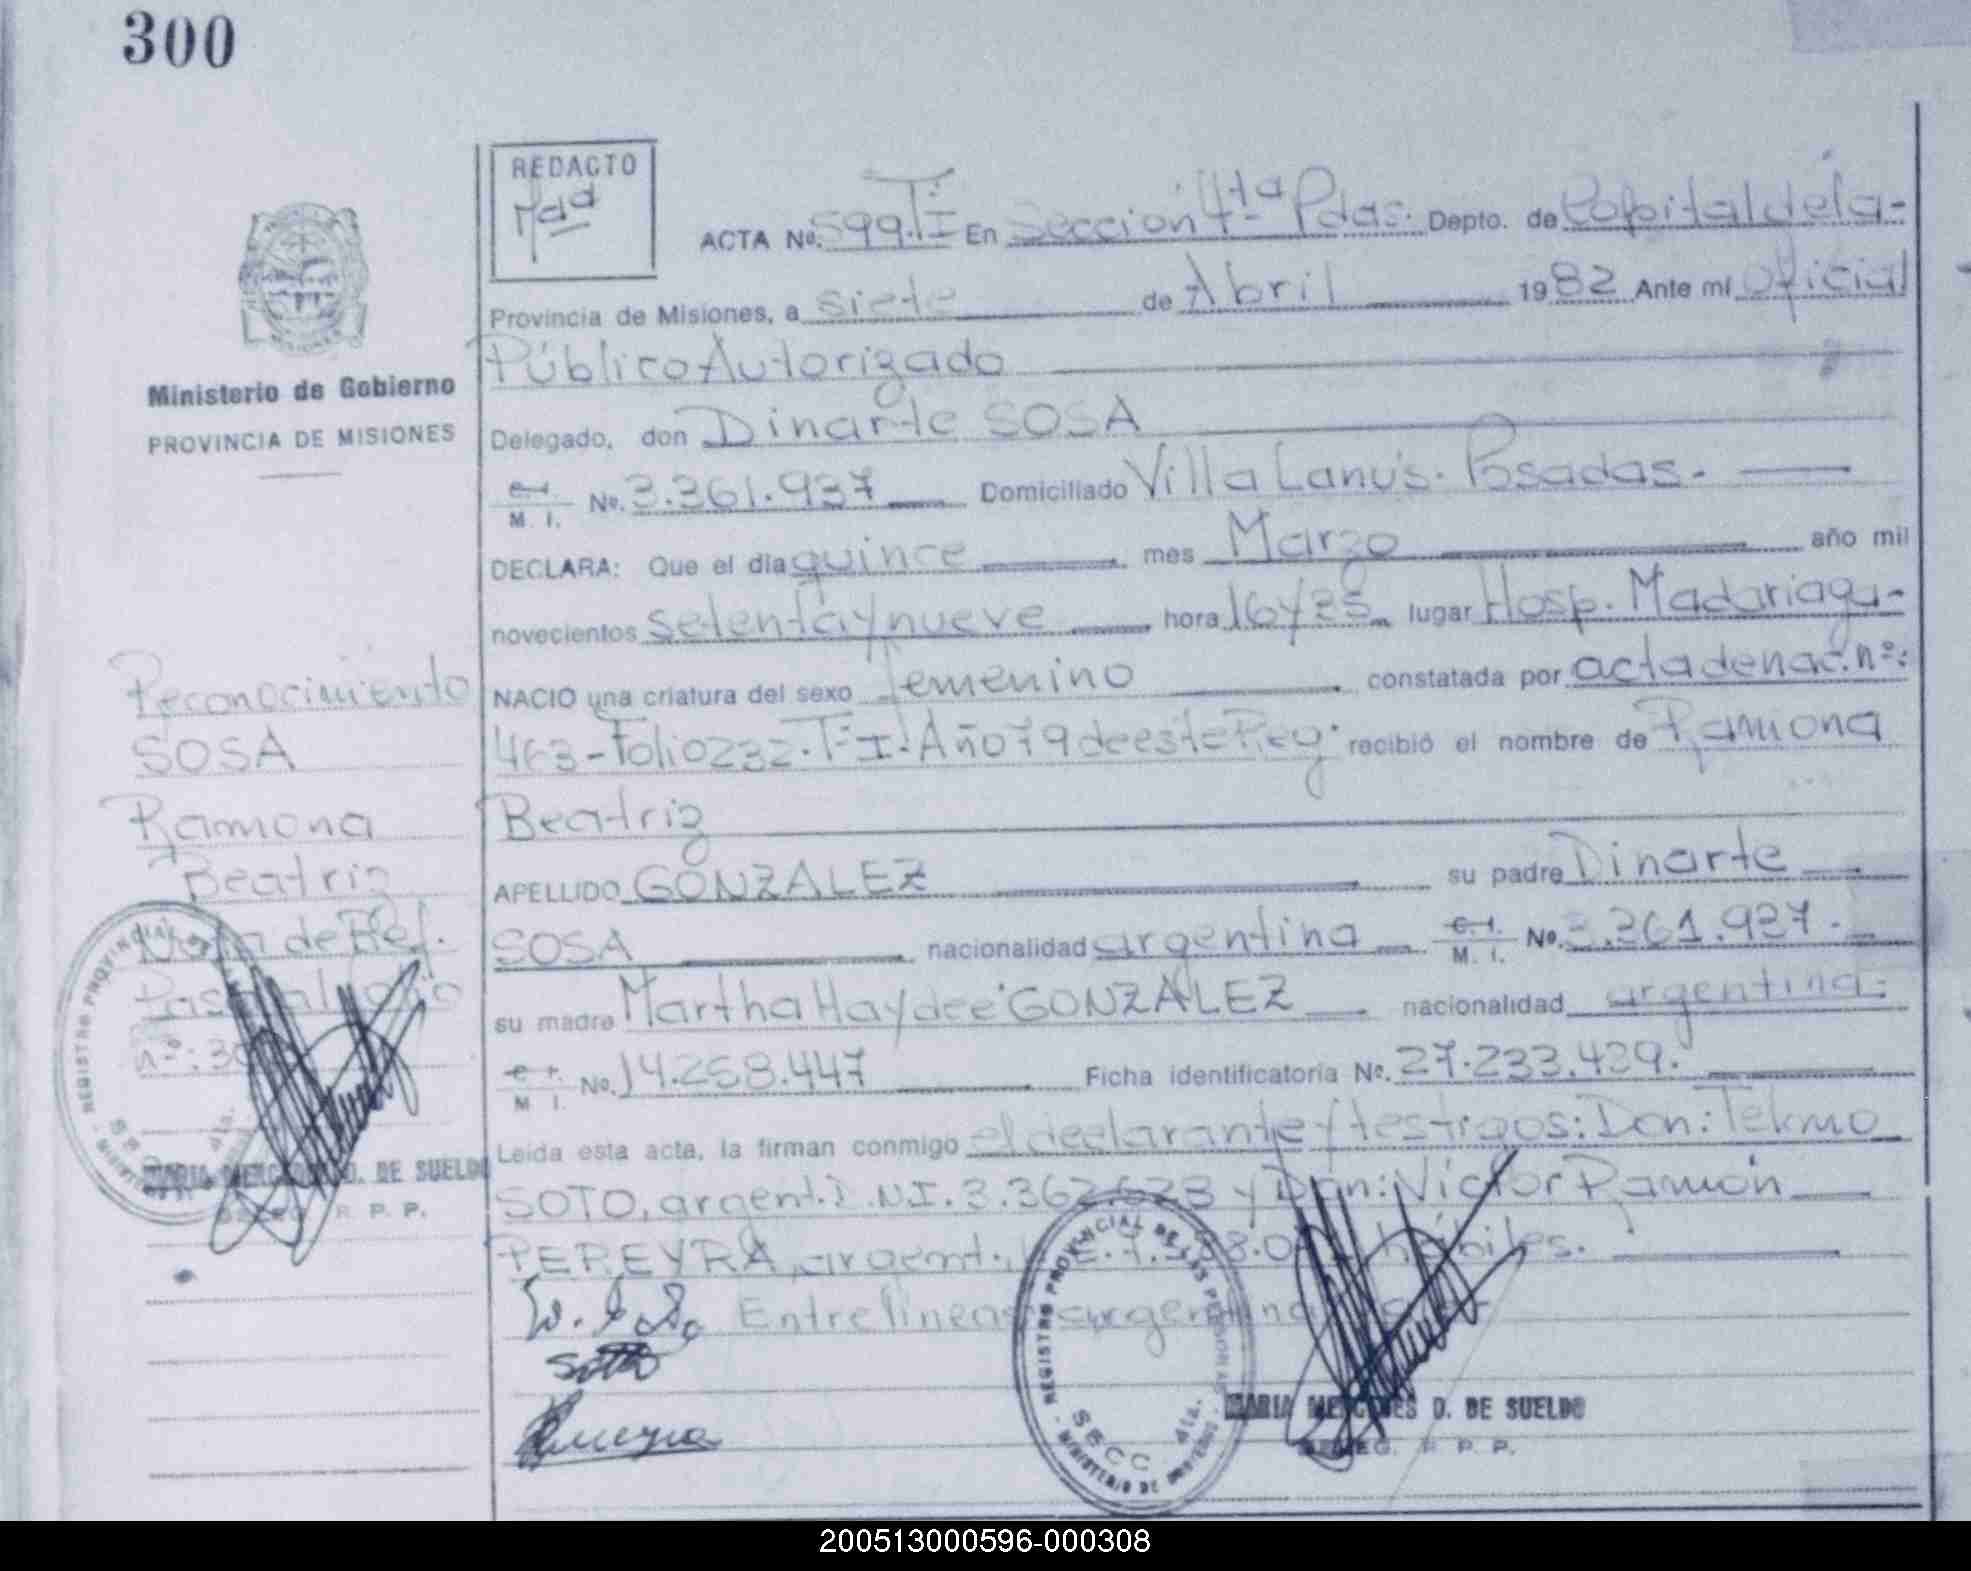 300
REDACTO
ACTA No. 599.T:I En Sección 4ta Pdas. Depto. de Capital de la-
Provincia de Misiones, a siete de Abril 1982 Ante mí Oficial
Público Autorizado
Ministerio de Gobierno
PROVINCIA DE MISIONES
Delegado, don Dinarte SOSA
M. I. No. 3.361.937 Domiciliado Villa Lanús. Posadas.
DECLARA: Que el día quince mes Marzo año mil
novecientos setenta y nueve hora 16 y 25 lugar Hosp. Madariaga-
NACIO una criatura del sexo femenino constatada por acta de nac. nº:
463-Folio 232. T:I. Año 79 de este Reg. recibió el nombre de Ramona
Beatriz
APELLIDO GONZALEZ su padre Dinarte
SOSA nacionalidad argentina C.I. M. I. No. 3.361.937.
su madre Martha Haydeé GONZALEZ nacionalidad argentina.
M I. No. 14.258.447 Ficha identificatoria No. 27.233.439.
Leída esta acta, la firman conmigo el declarante y testigos: Don: Telmo
SOTO, argent. M.I. 3.362. y Don: Víctor Ramón
PEREYRA, argent. hábiles.
Entre líneas argentina
Soto
Reconocimiento
SOSA
Ramona
Beatriz
Nota de Ref.
REGISTRO PROVINCIAL DE
SECC 4ta.
MARIA MERCEDES D. DE SUELDO
R. P. P.
REGISTRO PROVINCIAL DE LAS PERSONAS
SECC 4ta.
MINISTERIO DE GOBIERNO
MARIA MERCEDES D. DE SUELDO
DELEG. R. P. P.
200513000596-000308